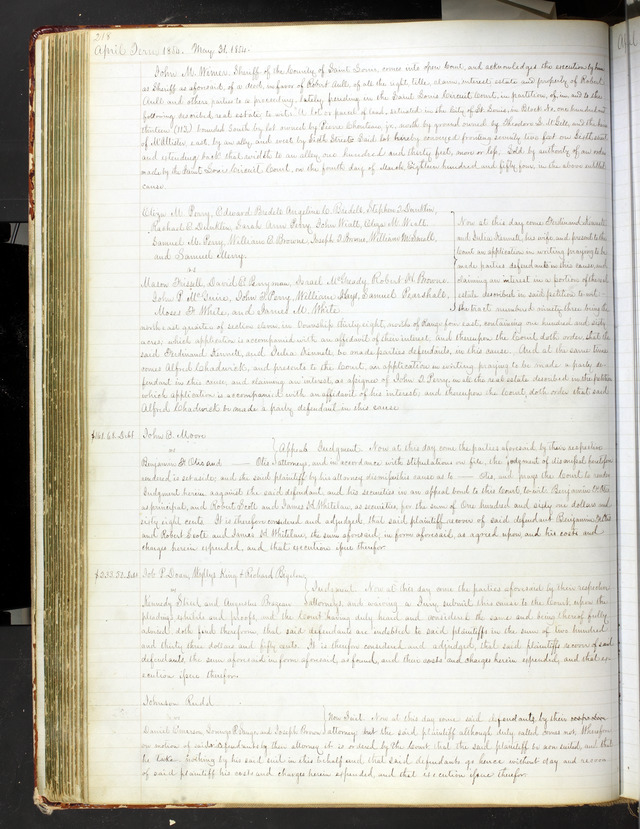 218
April Term 1854. May 31. 1854.
John M. Wimer, Sheriff of the County of Saint Louis, comes into open Court, and acknowledges the execution by him
as Sheriff as aforesaid, of a deed, in favor of Robert Aull, of all the right, title, claim, interest estate and property of Robert
Aull and others parties to a proceeding, lately pending in the Saint Louis Circuit Court, in partition, of, in and to the
following described real estate to wit: A lot or parcel of land, situated in the City of St. Louis, in Block No. one hundred and
thirteen (113) bounded South by lot owned by Pierre Chouteau jr., north by ground owned by Theodore L. McGill, and the heirs
of McAllister, east, by an alley, and west by Sixth Street. Said lot hereby conveyed fronting seventy two feet on Sixth street
and extending back that width to an alley one hundred and thirty feet, more or less. Sold by authority of an order
made by the Saint Louis Circuit Court, on the fourth day of March Eighteen hundred and fifty four, in the above entitled
cause.
Eliza M. Perry, Edward Bredell Angeline C. Bredell, Stephen D. Dunklin,
Rachael C. Dunklin, Sarah Ann Perry, John Wiatt, Eliza M. Wiatt
Samuel M. Perry, William C. Browne, Joseph T. Browne William
and Samuel Merry.
vs
Mason Frissell, David C. Perryman, Israel McGready, Robert H. Browne
John P. McGuire, John T. Perry, William Hoys, Samuel
Moses F. White, and James M. White
Now at this day come Ferdinand Kennett
and Julia Kennett, his wife, and present to the
Court an application in writing praying to be
made parties defendants in this cause, and
claiming an interest in a portion of the real
estate described in said petition to wit:
the tract numbered ninety three being the
north east quarter of section eleven, in Township thirty eight, north of Range four east, containing one hundred and sixty
acres; which application is accompanied with an affidavit of their interest; and thereupon the Court doth order, that the
said Ferdinand Kennett, and Julia Kennett, be made parties defendants, in this cause. And at the same time
comes Alfred Chadwick, and presents to the Court, an application in writing praying to be made a party de-
fendant in this cause, and claiming an interest, as assignee of John T. Perry, in all the real estate described in the petition
which application is accompanied with an affidavit of his interest; and thereupon the Court, doth order that said
Alfred Chadwick be made a party defendant in this cause
$161.68. Debt John B. Moon
vs
Benjamin F. Otis and — Otis
Appeal. Judgment. Now at this day come the parties aforesaid by their respective
attorneys, and in accordance with stipulations on file, the judgment of dismissal heretofore
rendered is set aside; and the said plaintiff by his attorney dismisses this cause as to — Otis, and prays the Court to render
Judgment herein against the said defendant, and his securities in an appeal bond to this Court, to wit Benjamin F. Otis
as principal, and Robert Scott and James H. Whitelaw, as securities, for the sum of One hundred and sixty one dollars and
sixty eight cents. It is therefore considered and adjudged, that said plaintiff recover of said defendant Benjamin F. Otis
and Robert Scott and James H. Whitelaw, the sum aforesaid, in form aforesaid, as agreed upon, and his costs and
charges herein expended, and that execution issue therefor.
$233.50. Debt Job P. Doan, Wyllys King & Richard Bigelow
vs
Kennedy Steel and Augustin
Judgment. Now at this day come the parties aforesaid by their respective
attorneys, and waiving a Jury, submit this cause to the Court, upon the
pleadings exhibits and proofs, and the Court having duly heard and considered the same and being thereof fully
advised, doth find therefrom, that said defendants are indebted to said plaintiffs in the sum of two hundred
and thirty three dollars and fifty cents. It is therefore considered and adjudged, that said plaintiffs recover of said
defendants, the sum aforesaid in form aforesaid, as found, and their costs and charges herein expended, and that ex-
ecution issue therefor.
Johnson Rudd
vs
Daniel Emerson, and Joseph Brown
Non Suit. Now at this day come said defendants, by their
attorney but the said plaintiff although duly called comes not, Wherefore
on motion of said defendants by their attorney it is ordered by the Court that the said plaintiff be non suited, and that
he take nothing by his said suit in this behalf and that said defendants go hence without day and recover
of said plaintiff his costs and charges herein expended, and that execution issue therefor.
April